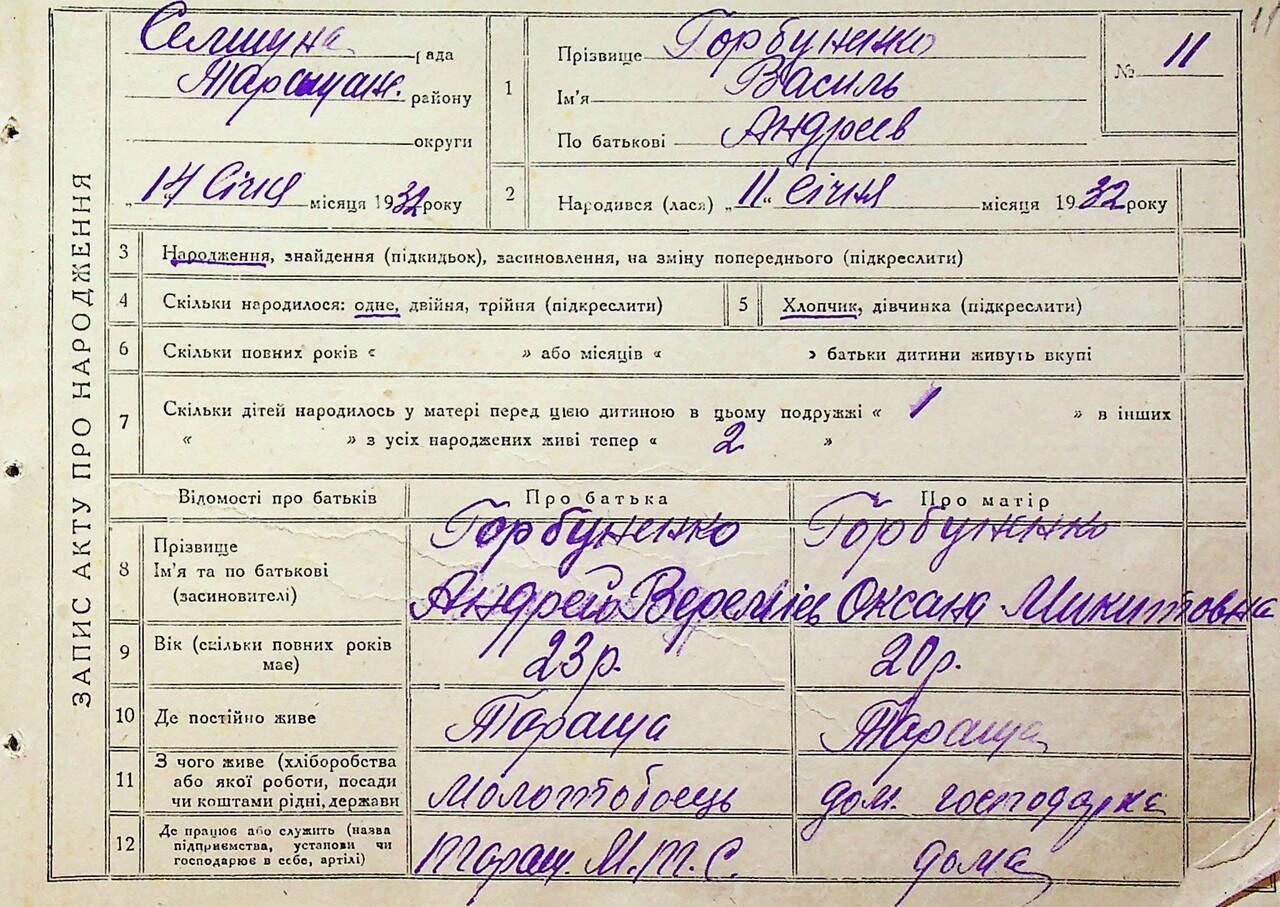 11
ЗАПИС АКТУ ПРО НАРОДЖЕННЯ
Селищна рада
Таращан. району
округи
„17 Січня місяця 1932 року
1 Прізвище Горбуненко
Ім'я Василь
По батькові Андреєв
№ 11
2 Народився (лася) „11“ Січня місяця 1932 року
3 Народження, знайдення (підкидьок), засиновлення, на зміну попереднього (підкреслити)
4 Скільки народилося: одне, двійня, трійня (підкреслити)
5 Хлопчик, дівчинка (підкреслити)
6 Скільки повних років « » або місяців « » батьки дитини живуть вкупі
7 Скільки дітей народилось у матері перед цією дитиною в цьому подружжі « 1 » в інших
« » з усіх народжених живі тепер « 2 »
Відомості про батьків Про батька Про матір
8 Прізвище Горбуненко Горбуненко
Ім'я та по батькові Андрей Оксана Микитовна
(засиновителі)
9 Вік (скільки повних років має) 23 р. 20 р.
10 Де постійно живе Тараща Тараща
11 З чого живе (хліборобства
або якої роботи, посади
чи коштами рідні, держави Молотобоець дом. господарка
12 Де працює або служить (назва
підприємства, установи чи
господарює в себе, артілі) Таращ. М.Т.С. дома